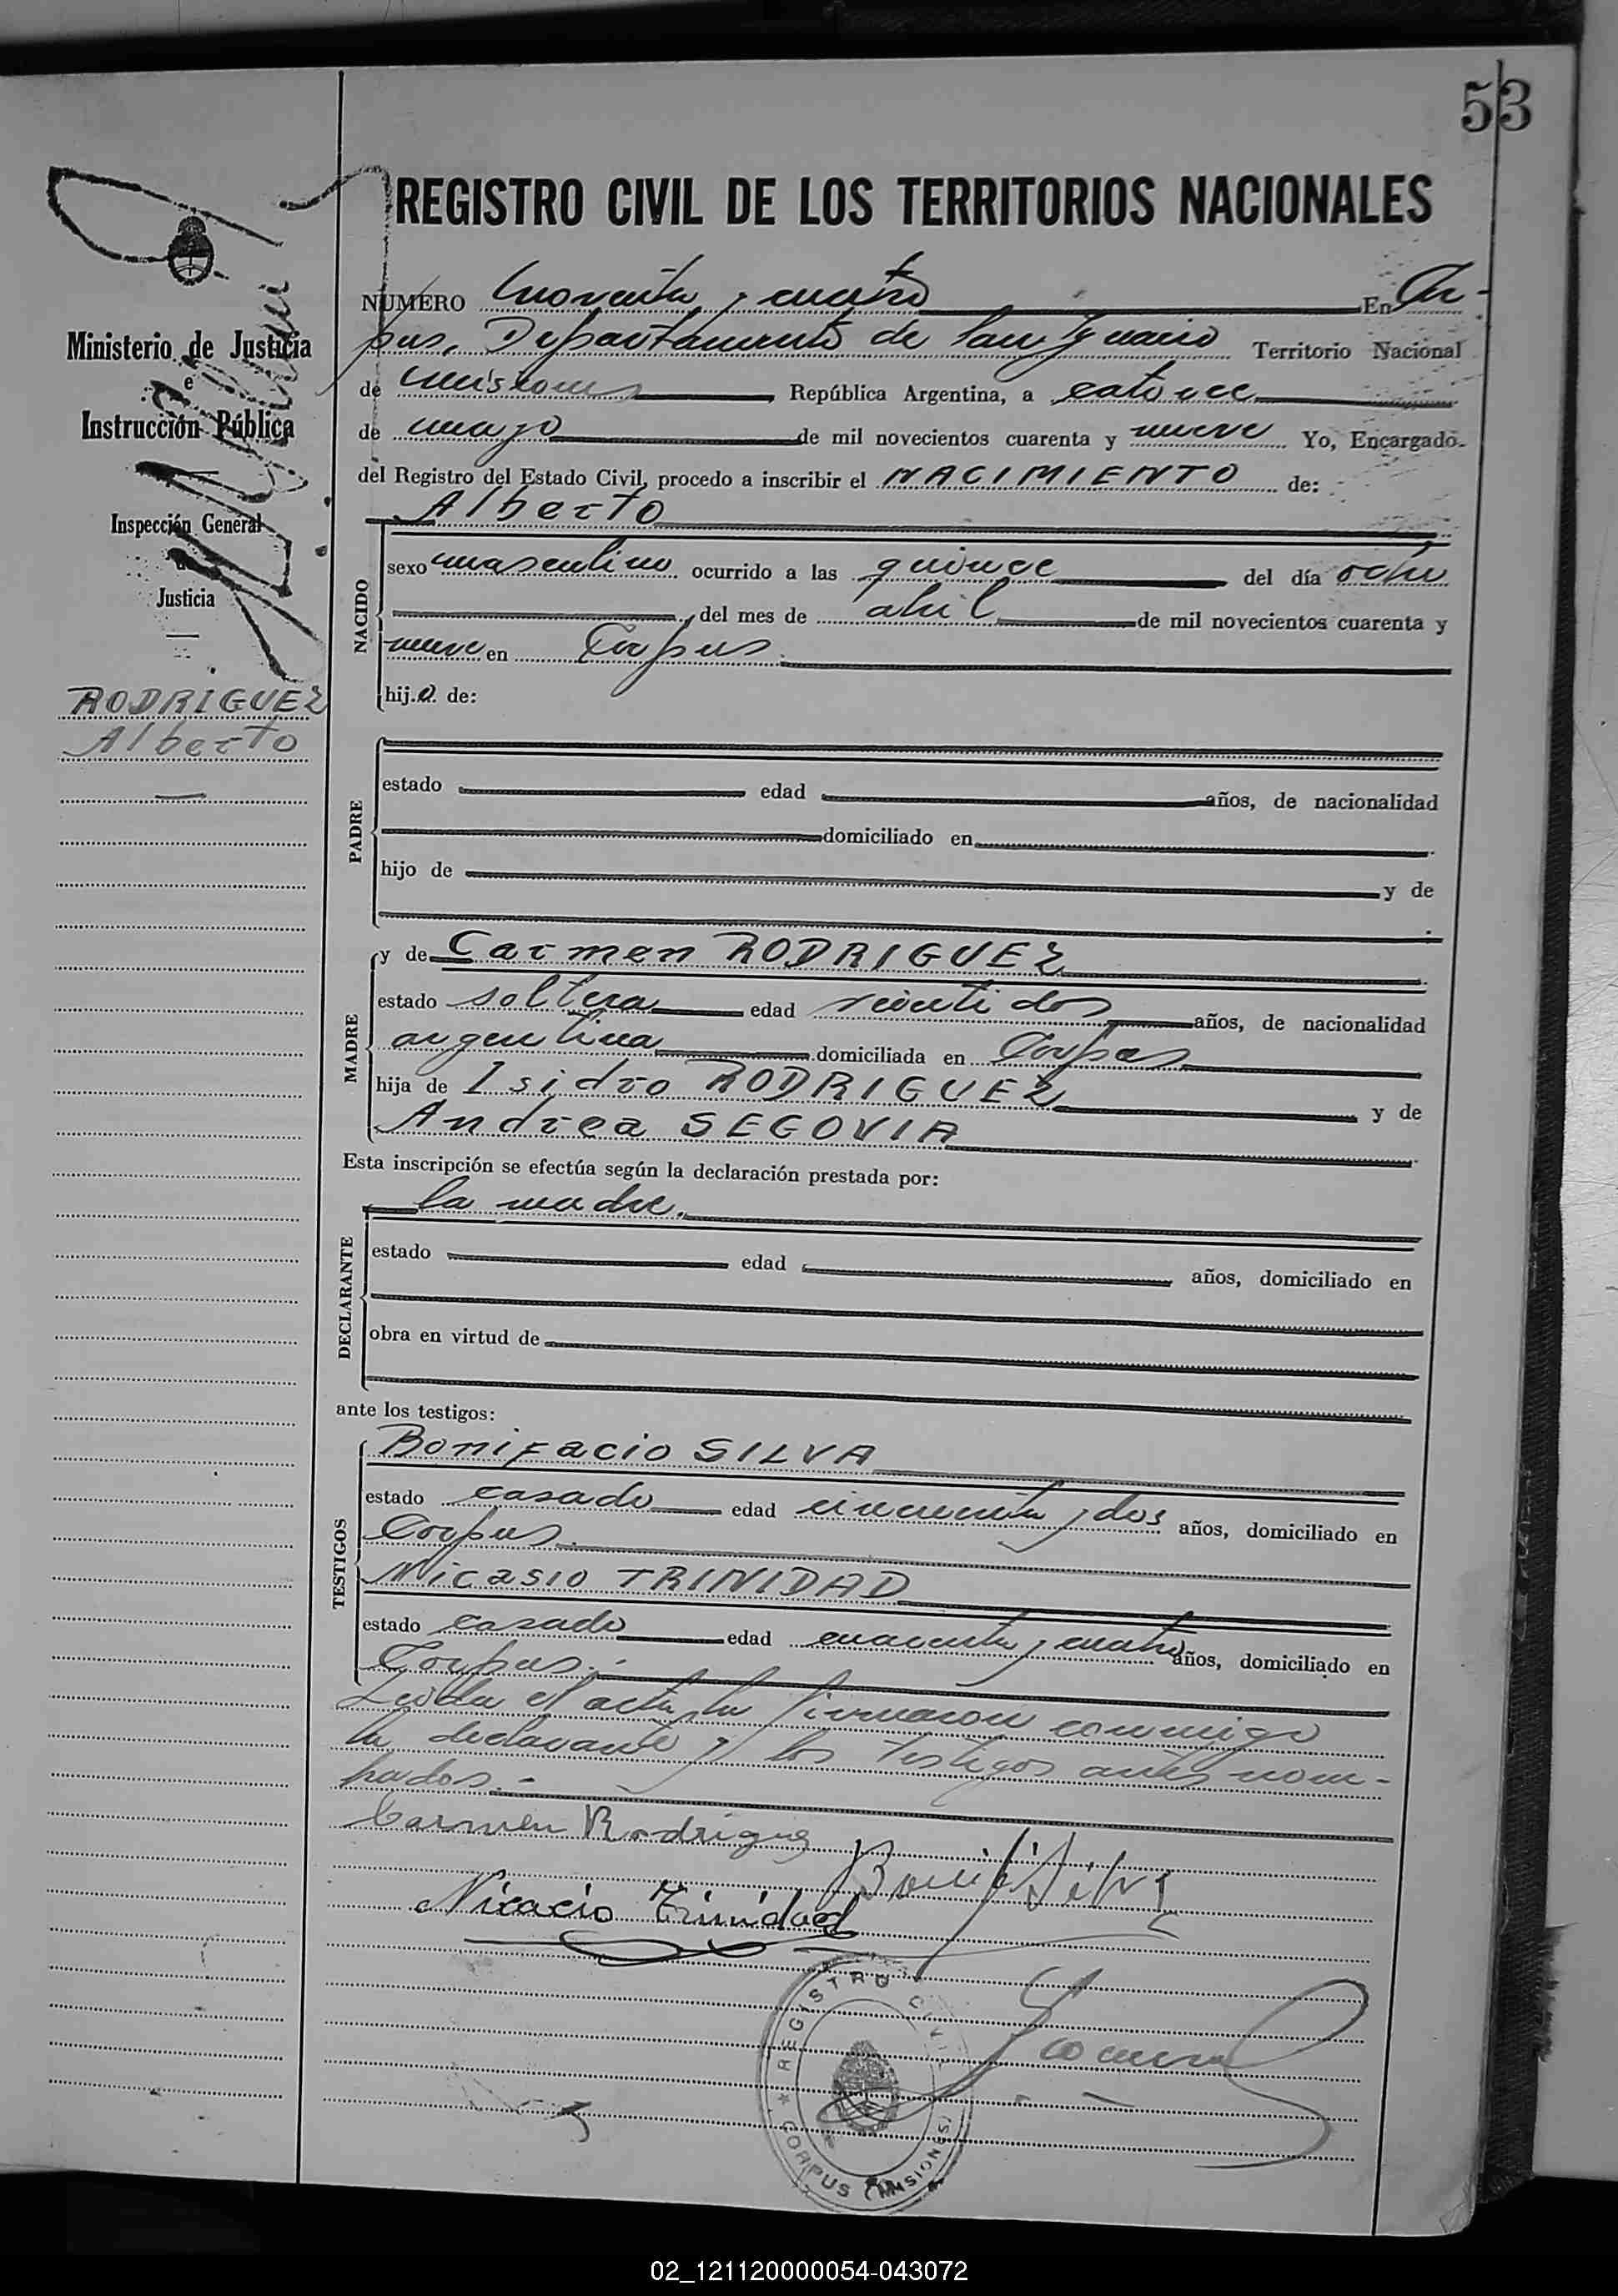 53
REGISTRO CIVIL DE LOS TERRITORIOS NACIONALES
Ministerio de Justicia
e
Instrucción Pública
Inspección General
de
Justicia
RODRIGUEZ
Alberto
NUMERO cuarenta y cuatro En Cor-
pus, Departamento de San Ignacio Territorio Nacional
de Misiones República Argentina, a catorce
de mayo de mil novecientos cuarenta y nueve Yo, Encargado
del Registro del Estado Civil, procedo a inscribir el NACIMIENTO de:
Alberto
NACIDO
sexo masculino ocurrido a las quince del día ocho
del mes de abril de mil novecientos cuarenta y
nueve en Corpus.
hij.o. de:
PADRE
estado edad años, de nacionalidad
domiciliado en
hijo de y de
MADRE
y de Carmen RODRIGUEZ
estado soltera edad veinti dos años, de nacionalidad
argentina domiciliada en Corpus
hija de Isidro RODRIGUEZ y de
Andrea SEGOVIA
Esta inscripción se efectúa según la declaración prestada por:
la madre.
DECLARANTE
estado edad años, domiciliado en
obra en virtud de
ante los testigos:
TESTIGOS
Bonifacio SILVA
estado casado edad cincuenta y dos años, domiciliado en
Corpus.
Nicasio TRINIDAD
estado casado edad cuarenta y cuatro años, domiciliado en
Corpus.-
Leida el acta, la firmaron conmigo
la declarante y los testigos antes nom-
brados.-
Carmen Rodriguez
Bonif. Silva
Nicacio Trinidad
REGISTRO CIVIL
CORPUS (MISIONES)
02_121120000054-043072